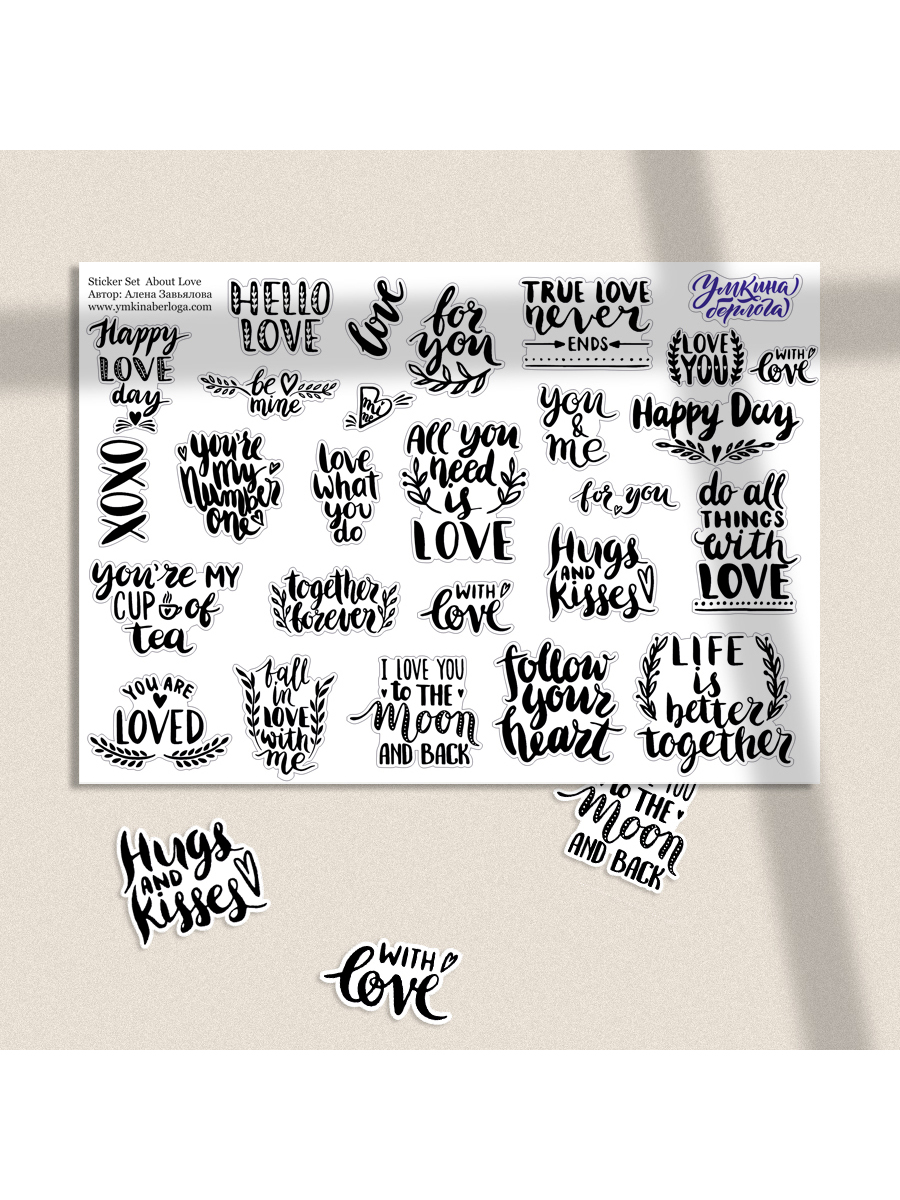 Sticker Set About Love
Автор: Алена Завьялова
www.ymkinaberloga.com
Умкина
берлога
Happy
LOVE
day
HELLO
LOVE
love
for
you
TRUE LOVE
never
ENDS
LOVE
YOU
WITH
love
be
mine
you
&
me
Happy Day
XOXO
You're
my
Number
one
love
what
you
do
All you
need
is
LOVE
for you
do all
THINGS
with
LOVE
Hugs
AND
kisses
you're MY
CUP of
tea
together
forever
WITH
love
YOU ARE
LOVED
fall
in
LOVE
with
me
I LOVE YOU
to THE
Moon
AND BACK
follow
your
heart
LIFE
is
better
together
to THE
Moon
AND BACK
Hugs
AND
kisses
WITH
love